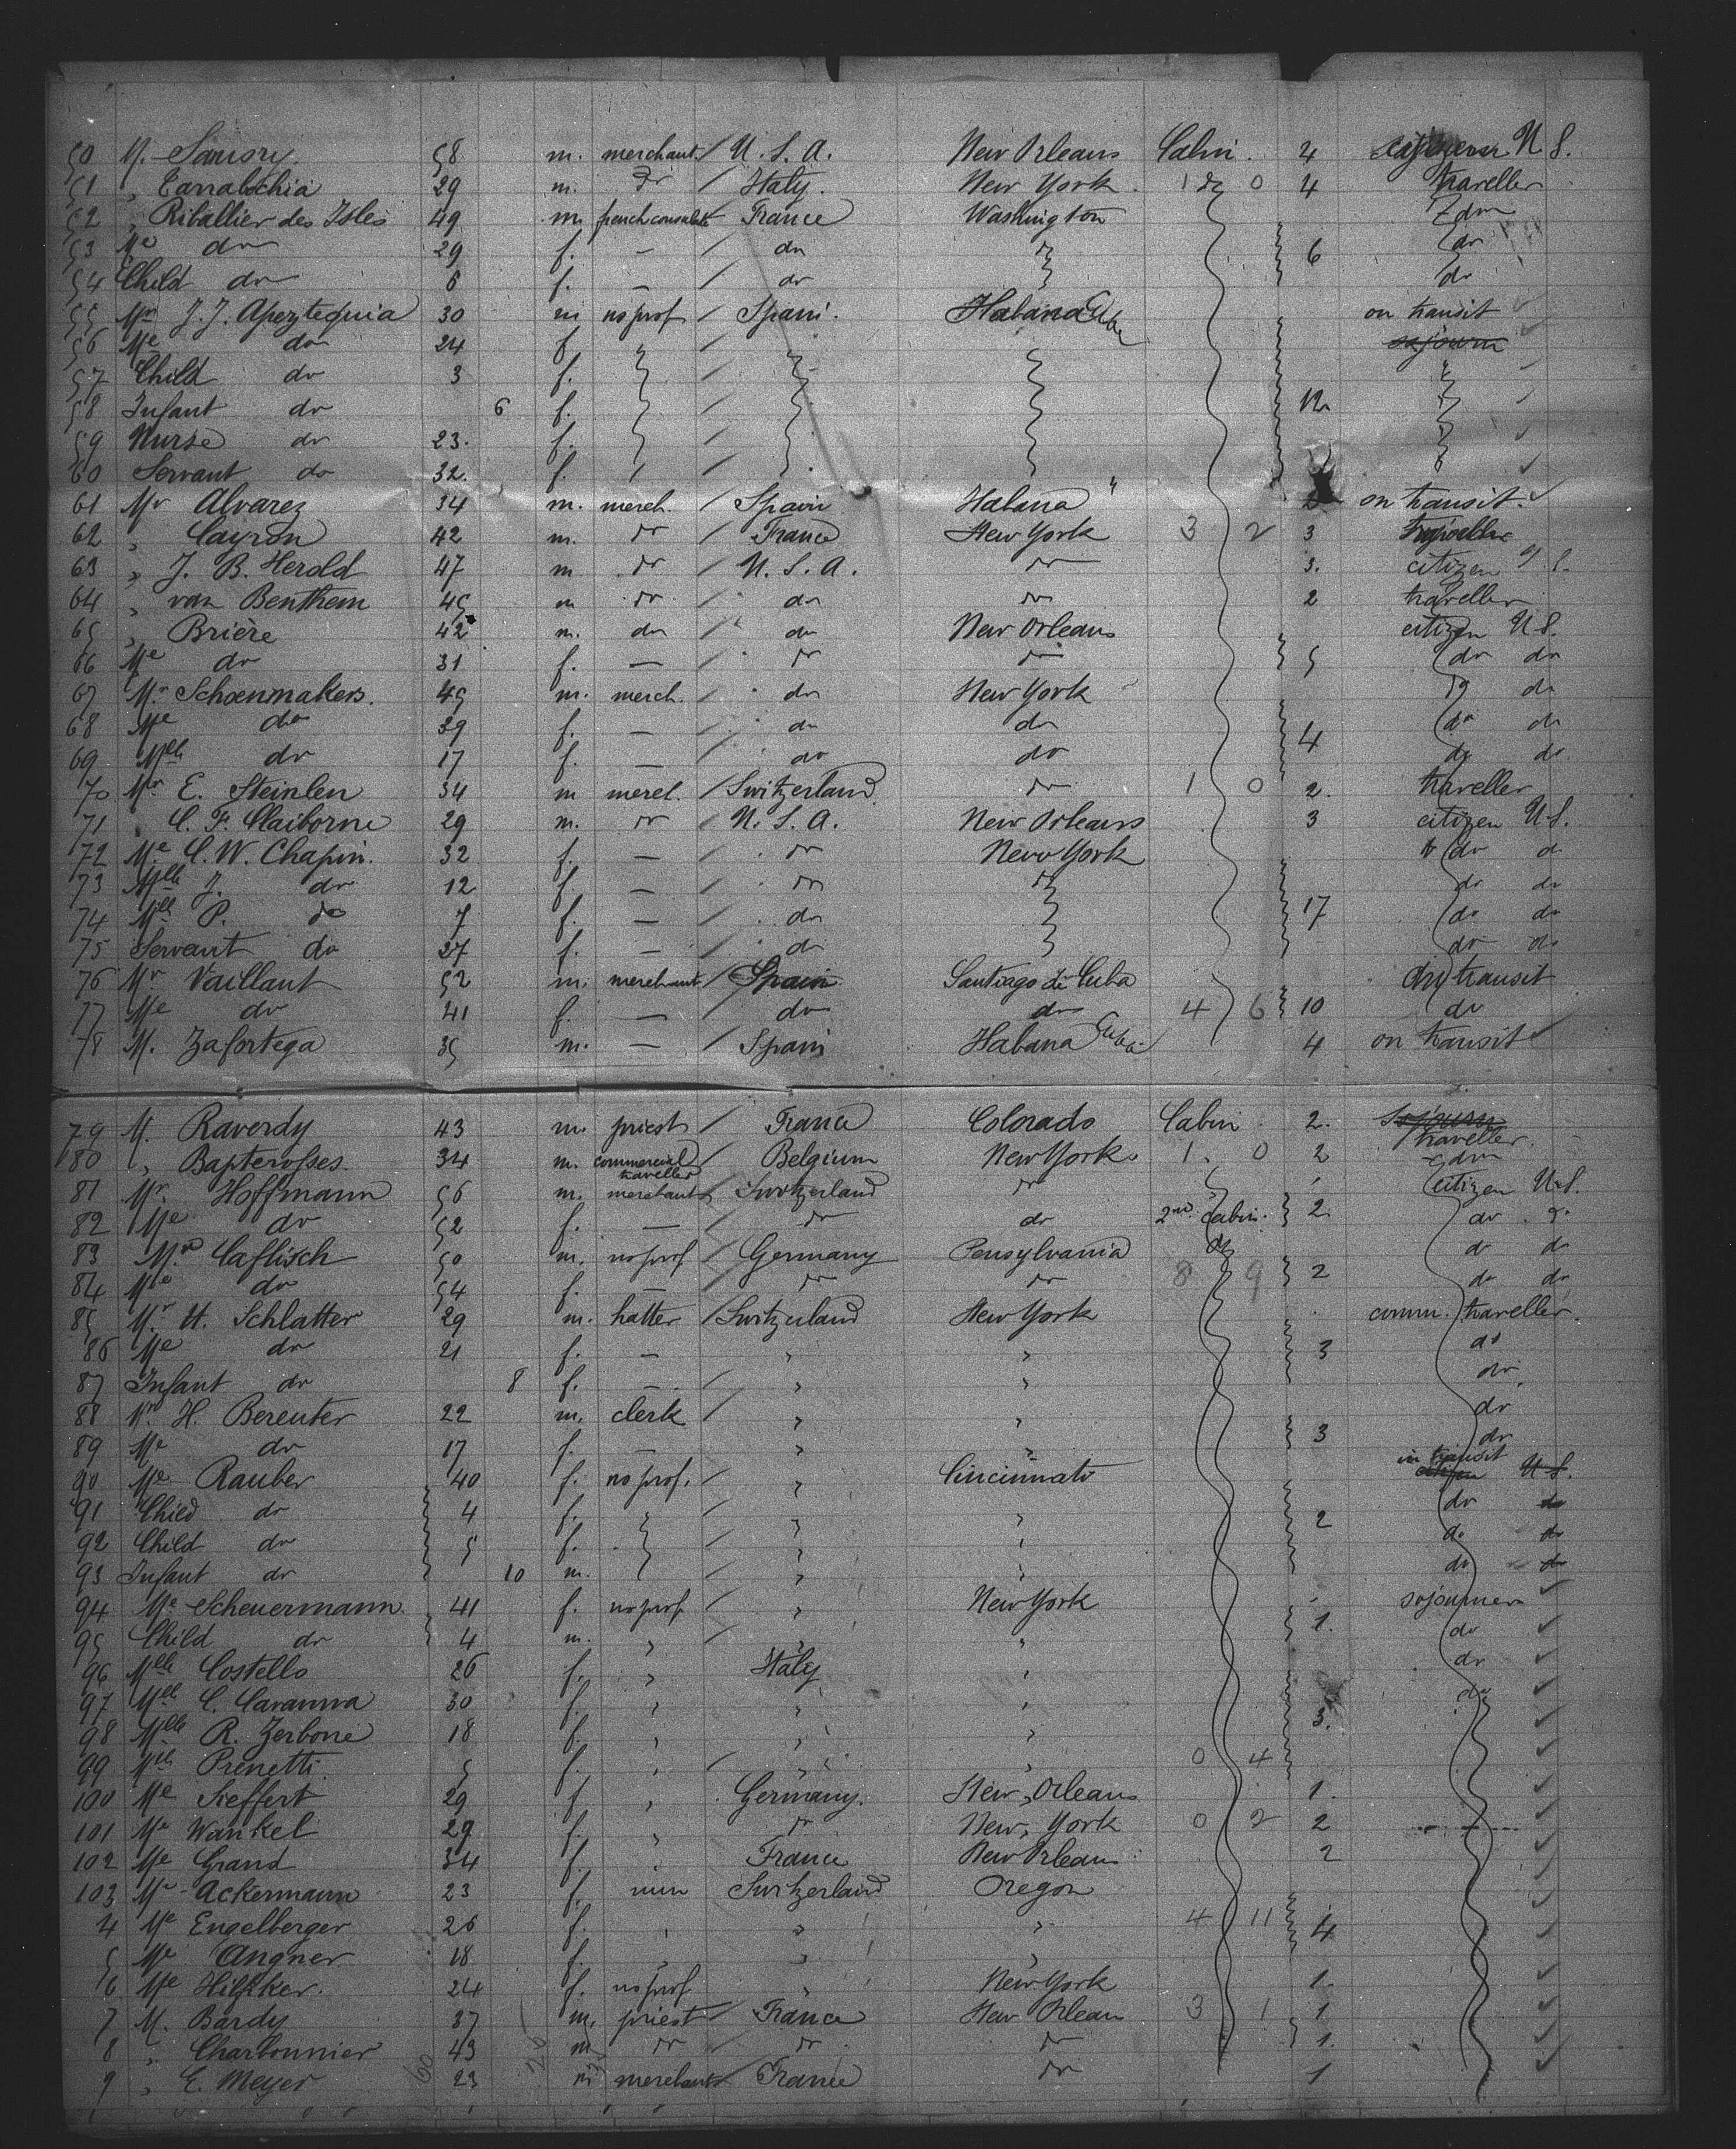 50 M. Sansry. 58 m. merchant U. S. A. New Orleans Cabin. 4 U S.
51 " Tarrabochia 29 m. do Italy. New York. 1 do 0 4 traveller
52 " Riballier des Isles 49 m. french consulate France Washington do
53 Me do 29 f. — do do 6 do
54 Child do 6 f. — do do
55 Mr J. J. Apezteguia 30 m no prof Spain. Habana Cuba on transit
56 Me do 24 f. sojourn
57 Child do 3 f.
58 Infant do 6 f. 12
59 Nurse do 23. f.
60 Servant do 32. f.
61 Mr Alvarez 34 m. merch. Spain Habana " 2 on transit.
62 " Cayron 42 m. do France New York 3 2 3
63 " J. B. Herold 47 m do U. S. A. do 3. citizen U. S.
64 " van Benthem 45 m do do do 2 traveller
65 " Brière 42 m. do do New Orleans citizen U S.
66 Me do 31 f. — do do 5 do do
67 Mr Schoenmakers. 45 m. merch. do New York do do
68 Me do 39 f. — do do 4 do do
69 Mlle do 17 f. — do do do do
70 Mr E. Steinlen 34 m merch. Switzerland do 1 0 2. traveller
71 " C. F. Claiborne 29 m. do U. S. A. New Orleans 3 citizen U S.
72 Me C. W. Chapin. 32 f. — do New York do do
73 Mlle J. do 12 f. — do do do do
74 Mlle P. do 7 f. — do 17 do do
75 Servant do 27 f. — do do do
76 Mr Vaillant 52 m. merchant Spain Santiago de Cuba on transit
77 Me do 41 f. — do do 4 6 10 do
78 M. Zafortega 35 m. — Spain Habana Cuba 4 on transit
79 M. Raverdy 43 m. priest France Colorado Cabin 2. sojourn traveller
80 " Bapterosses. 34 m. commercial traveller Belgium New York 1. 0 2 do
81 Mr. Hoffmann 56 m. merchant Switzerland do citizen U S.
82 Me do 52 f. — do do 2nd Cabin. 2. do do
83 Mr Caflisch 50 m. no prof Germany Pensylvania do do do
84 Me do 54 f. — do do 8 9 2 do do
85 Mr H. Schlatter 29 m. hatter Switzerland New York comm. traveller
86 Me do 21 f. — " " 3 do
87 Infant do 8 f. — " " do
88 Mr H. Bereuter 22 m. clerk " " do
89 Me do 17 f. — " " 3 do
90 Me Rauber 40 f. no prof. " Cincinnati in transit citizen U S.
91 Child do 4 f. " " 2 do do
92 Child do 5 f. " " do do
93 Infant do 10 m. " " do do
94 Me Scheuermann 41 f. no prof " New York sojourner
95 Child do 4 m. " " " 1. do
96 Mlle Costello 26 f. " Italy " do
97 Mlle C. Cavanna 30 f. " " " do
98 Mlle R. Zerbone 18 f. " " " 3.
99 Mlle Prenetti. 5 f. " " " 0 4
100 Me Sieffert 29 f. " Germany. New Orleans 1.
101 Me Wankel 29 f. " do New York 0 2 2
102 Me Grand 34 f. " France New Orleans 2
103 Me Ackermann 23 f. nun Switzerland Oregon
4 Me Engelberger 26 f. " " " 4 11 4
5 Me Angner 18 f. " " "
6 Me Hilfiker. 24 f. no prof " New York 1.
7 M. Bardy 37 m. priest France New Orleans 3 1 1
8 " Charbonnier 43 m do do do 1.
9 " E. Meyer 23 m merchant France do 1